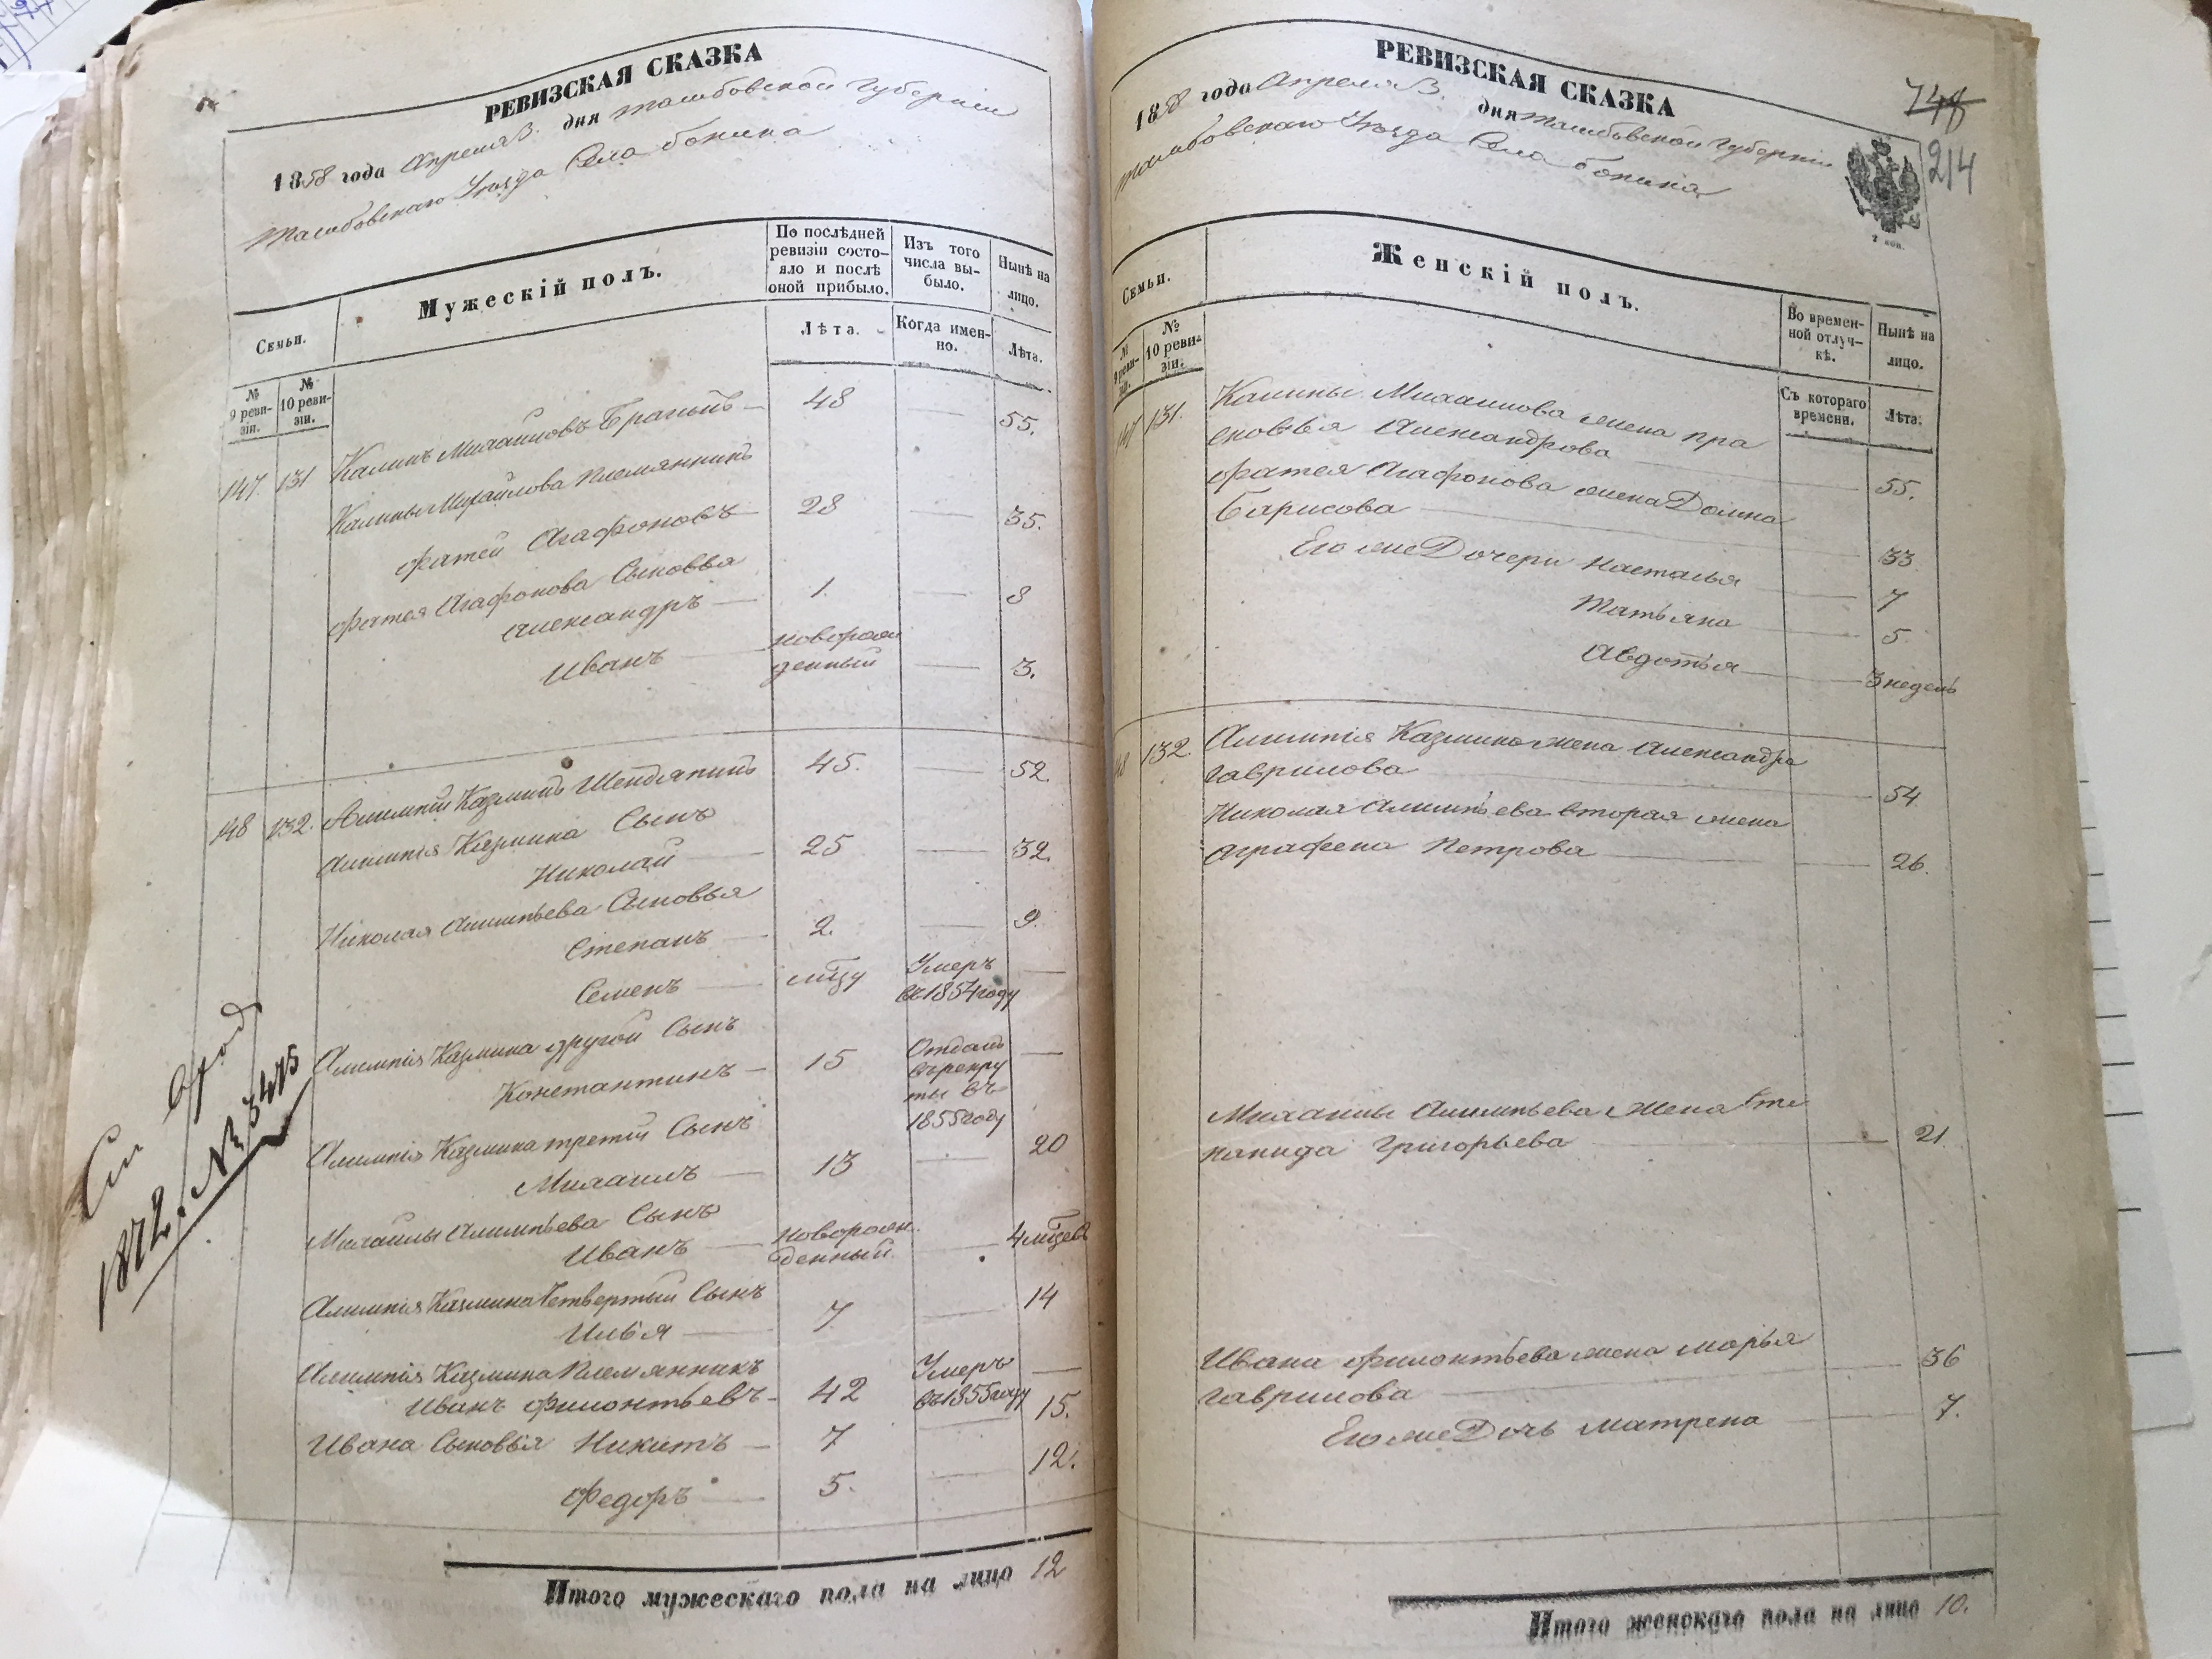 РЕВИЗСКАЯ СКАЗКА
1858 года Апреля 3. дня Тамбовской Губернии
Тамбовскаго Уезда Села Бокина
Семьи.
Мужескій полъ.
По послѣдней
ревизіи состо-
яло и послѣ
оной прибыло.
Изъ того
числа вы-
было.
Нынѣ на
лицо.
Лѣта.
Когда имен-
но.
Лѣта.
№
9 реви-
зіи.
№
10 реви-
зіи.
147. 131 Калинъ Михайловъ 48 55.
Калины Михайлова Племянникъ
Фатей Агафоновъ 28 35.
Фатея Агафонова Сыновья
Александръ 1. 8
Иванъ новорож
денный 3.
148 132. Алимпій Казминъ 45. 52.
Алимпія Казмина Сынъ
Николай 25 32.
Николая Алимпьева Сыновья
Степанъ 2. 9.
Семенъ мцу Умеръ
въ 1854 году
Алимпія Казмина другой Сынъ
Константинъ 15 Отданъ
въ рекру
ты въ
1855 году
Алимпія Казмина третій Сынъ
Михаилъ 13 20
Михайлы Алимпьева Сынъ
Иванъ новорож
денный 4 мцев
Алимпія Казмина Четвертый Сынъ
Илья 7 14
Алимпія Казмина Племянникъ
Иванъ Филонтьевъ 42 Умеръ
въ 1855 году
Ивана Сыновья Никитъ 7 15.
Федоръ 5. 12.
Итого мужескаго пола на лицо 12
1872. № 3475
РЕВИЗСКАЯ СКАЗКА
1858 года Апреля 3. дня Тамбовской Губернии
Тамбовскаго Уезда Села Бокина
748
214
2 коп.
Семьи.
Женскій полъ.
Во времен-
ной отлуч-
кѣ.
Нынѣ на
лицо.
Съ котораго
времени.
Лѣта.
№
9 реви-
зіи.
№
10 реви-
зіи.
147 131. Калины Михайлова жена Пра
сковья Александрова 55.
Фатея Агафонова жена Домна
Барисова 33
Его же Дочери Наталья 7
Татьяна 5.
Авдотья 3 недель
132. Алимпія Казмина жена Александра
Гаврилова 54
Николая Алимпьева вторая жена
Аграфена Петрова 26.
Михайлы Алимпьева Жена Сте
панида Григорьева 21.
Ивана Филонтьева жена Марья
Гаврилова 36
Его же Дочь Матрена 7.
Итого женскаго пола на лицо 10.